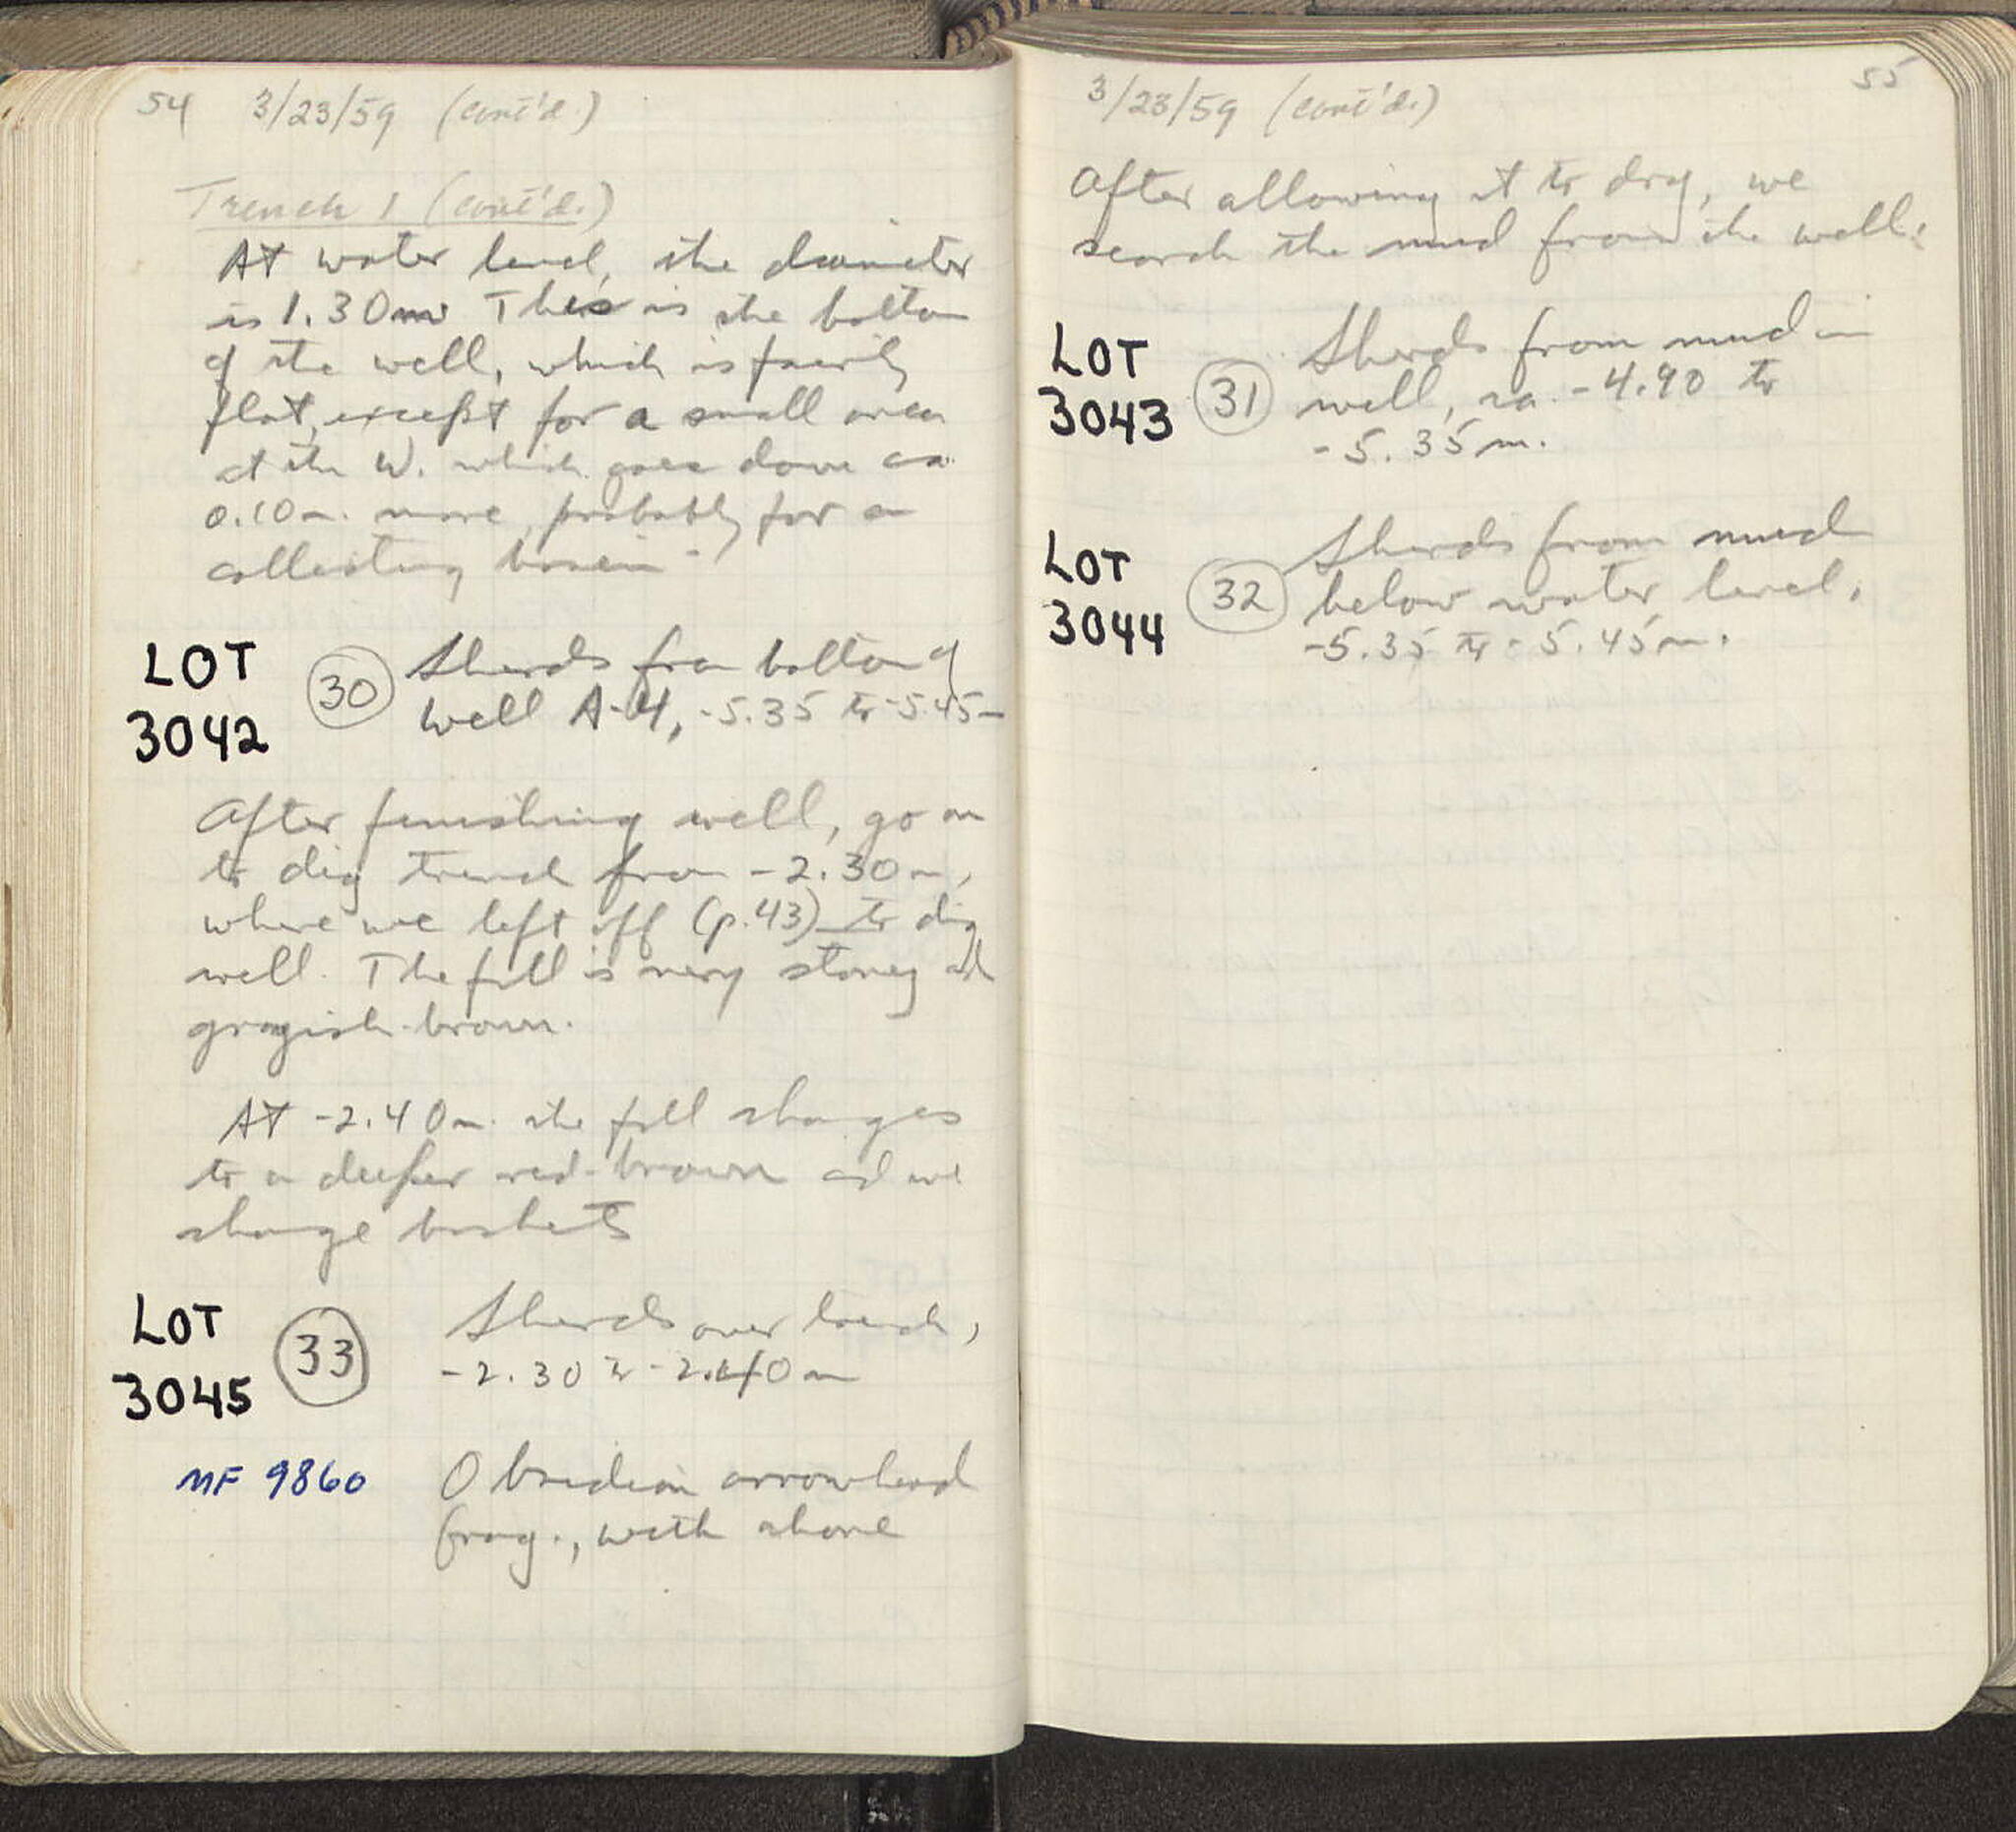 54 3/23/59 (cont'd.)
Trench 1 (cont'd.)
At water level, the diameter
is 1.30m. This is the bottom
of the well, which is fairly
flat, except for a small area
at the W. which goes down ca.
0.10m. more, probably for a
collecting basin.
LOT
3042
30 Sherds from bottom of
well A-4, -5.35 to -5.45m
After finishing well, go on
to dig trench from -2.30m,
where we left off (p.43) to dig
well. The fill is very stoney and
grayish-brown.
At -2.40m. the fill changes
to a deeper red-brown and we
change baskets
LOT
3045
33 Sherds over trench,
-2.30 to -2.40m
MF 9860 Obsidian arrowhead
frag., with above
3/23/59 (cont'd.) 55
After allowing it to dry, we
search the mud from the well:
LOT
3043
31 Sherds from mud in
well, ca. -4.90 to
-5.35m.
LOT
3044
32 Sherds from mud
below water level,
-5.35 to -5.45m.